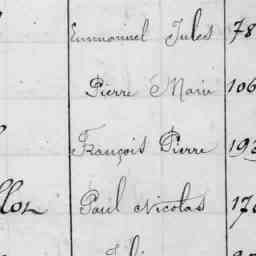 Emmanuel Jules 78
Pierre Marie 106
François Pierre 193
Paul Nicolas 170